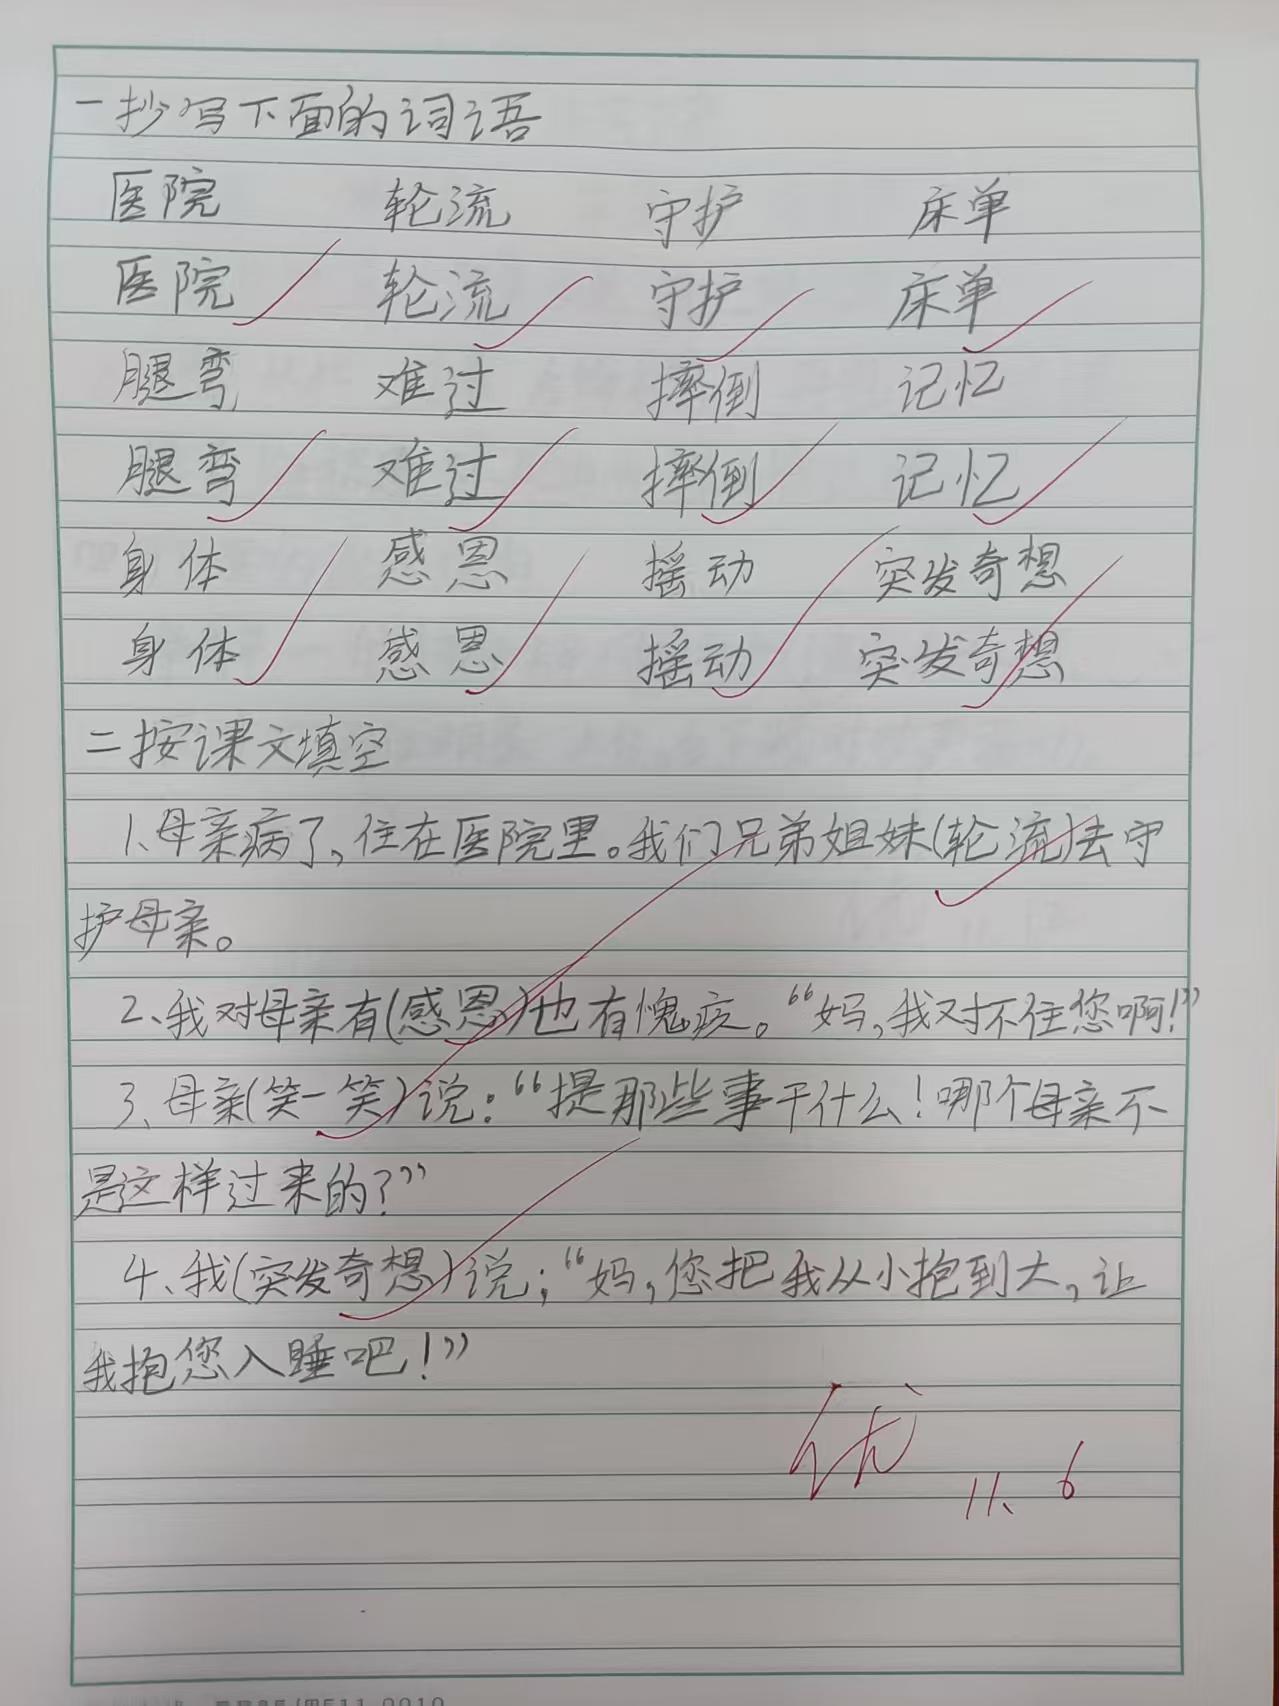 一抄写下面的词语
医院 轮流 守护 床单
医院 轮流 守护 床单
腿弯 难过 摔倒 记忆
腿弯 难过 摔倒 记忆
身体 感恩 摇动 突发奇想
身体 感恩 摇动 突发奇想
二按课文填空
1、母亲病了,住在医院里。我们兄弟姐妹(轮流)去守
护母亲。
2、我对母亲有(感恩)也有愧疚。“妈,我对不住您啊!”
3、母亲(笑一笑)说:“提那些事干什么!哪个母亲不
是这样过来的?”
4、我(突发奇想)说;“妈,您把我从小抱到大,让
我抱您入睡吧!”
优 11、6